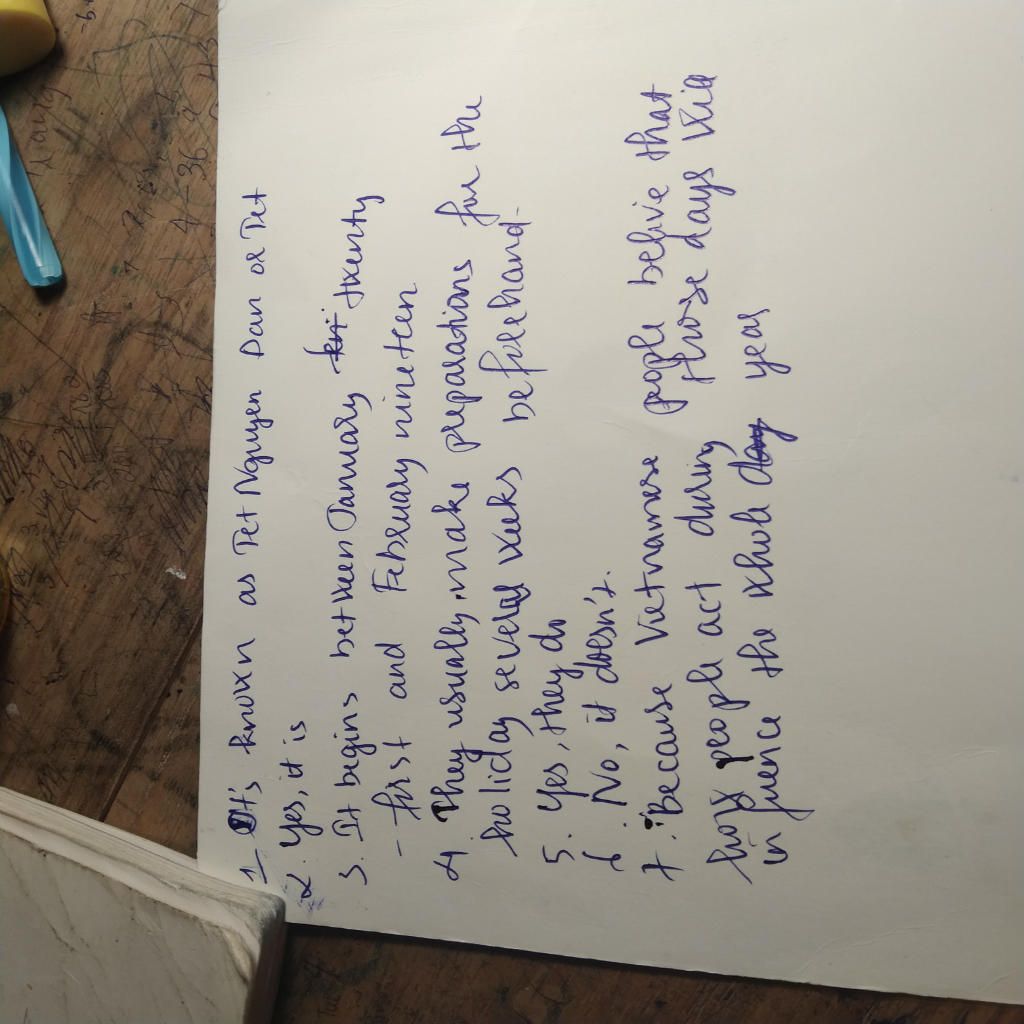 1. It's known as Tet Nguyen Dan or Tet
2. Yes, it is
3. It begins between January twenty
- first and February nineteen
4 They usually make preparations for the
holiday several weeks beforehand.
5. Yes, they do
6. No, it doesn't.
7. Because Vietnamese people belive that
how people act during those days will
influence the whole day year